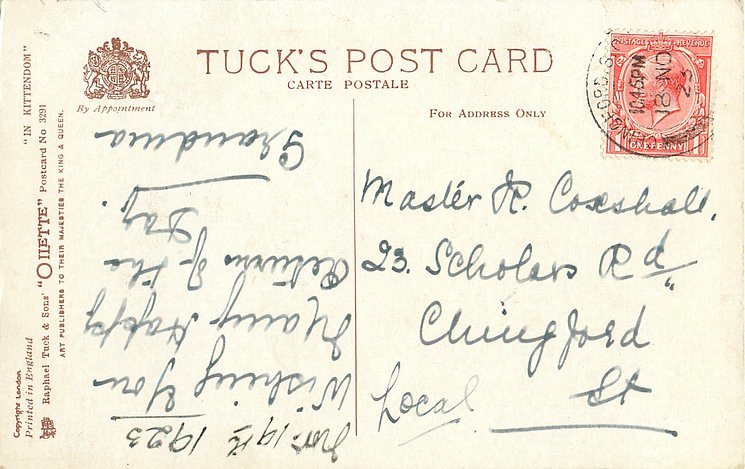 TUCK'S POST CARD
CARTE POSTALE
By Appointment
For Address Only
"IN KITTENDOM"
Raphael Tuck & Sons' "OILETTE" Postcard No 3291
ART PUBLISHERS TO THEIR MAJESTIES THE KING & QUEEN.
Copyright London
Printed in England
POSTAGE REVENUE
ONE PENNY
CHINGFORD. S.O.
10.45PM
18 NO
23
Nov. 19th 1923
Wishing you
Many Happy
Returns of the
Day.
Grandma
Master R. Coxshall.
23. Scholars Rd
Chingford
Local St